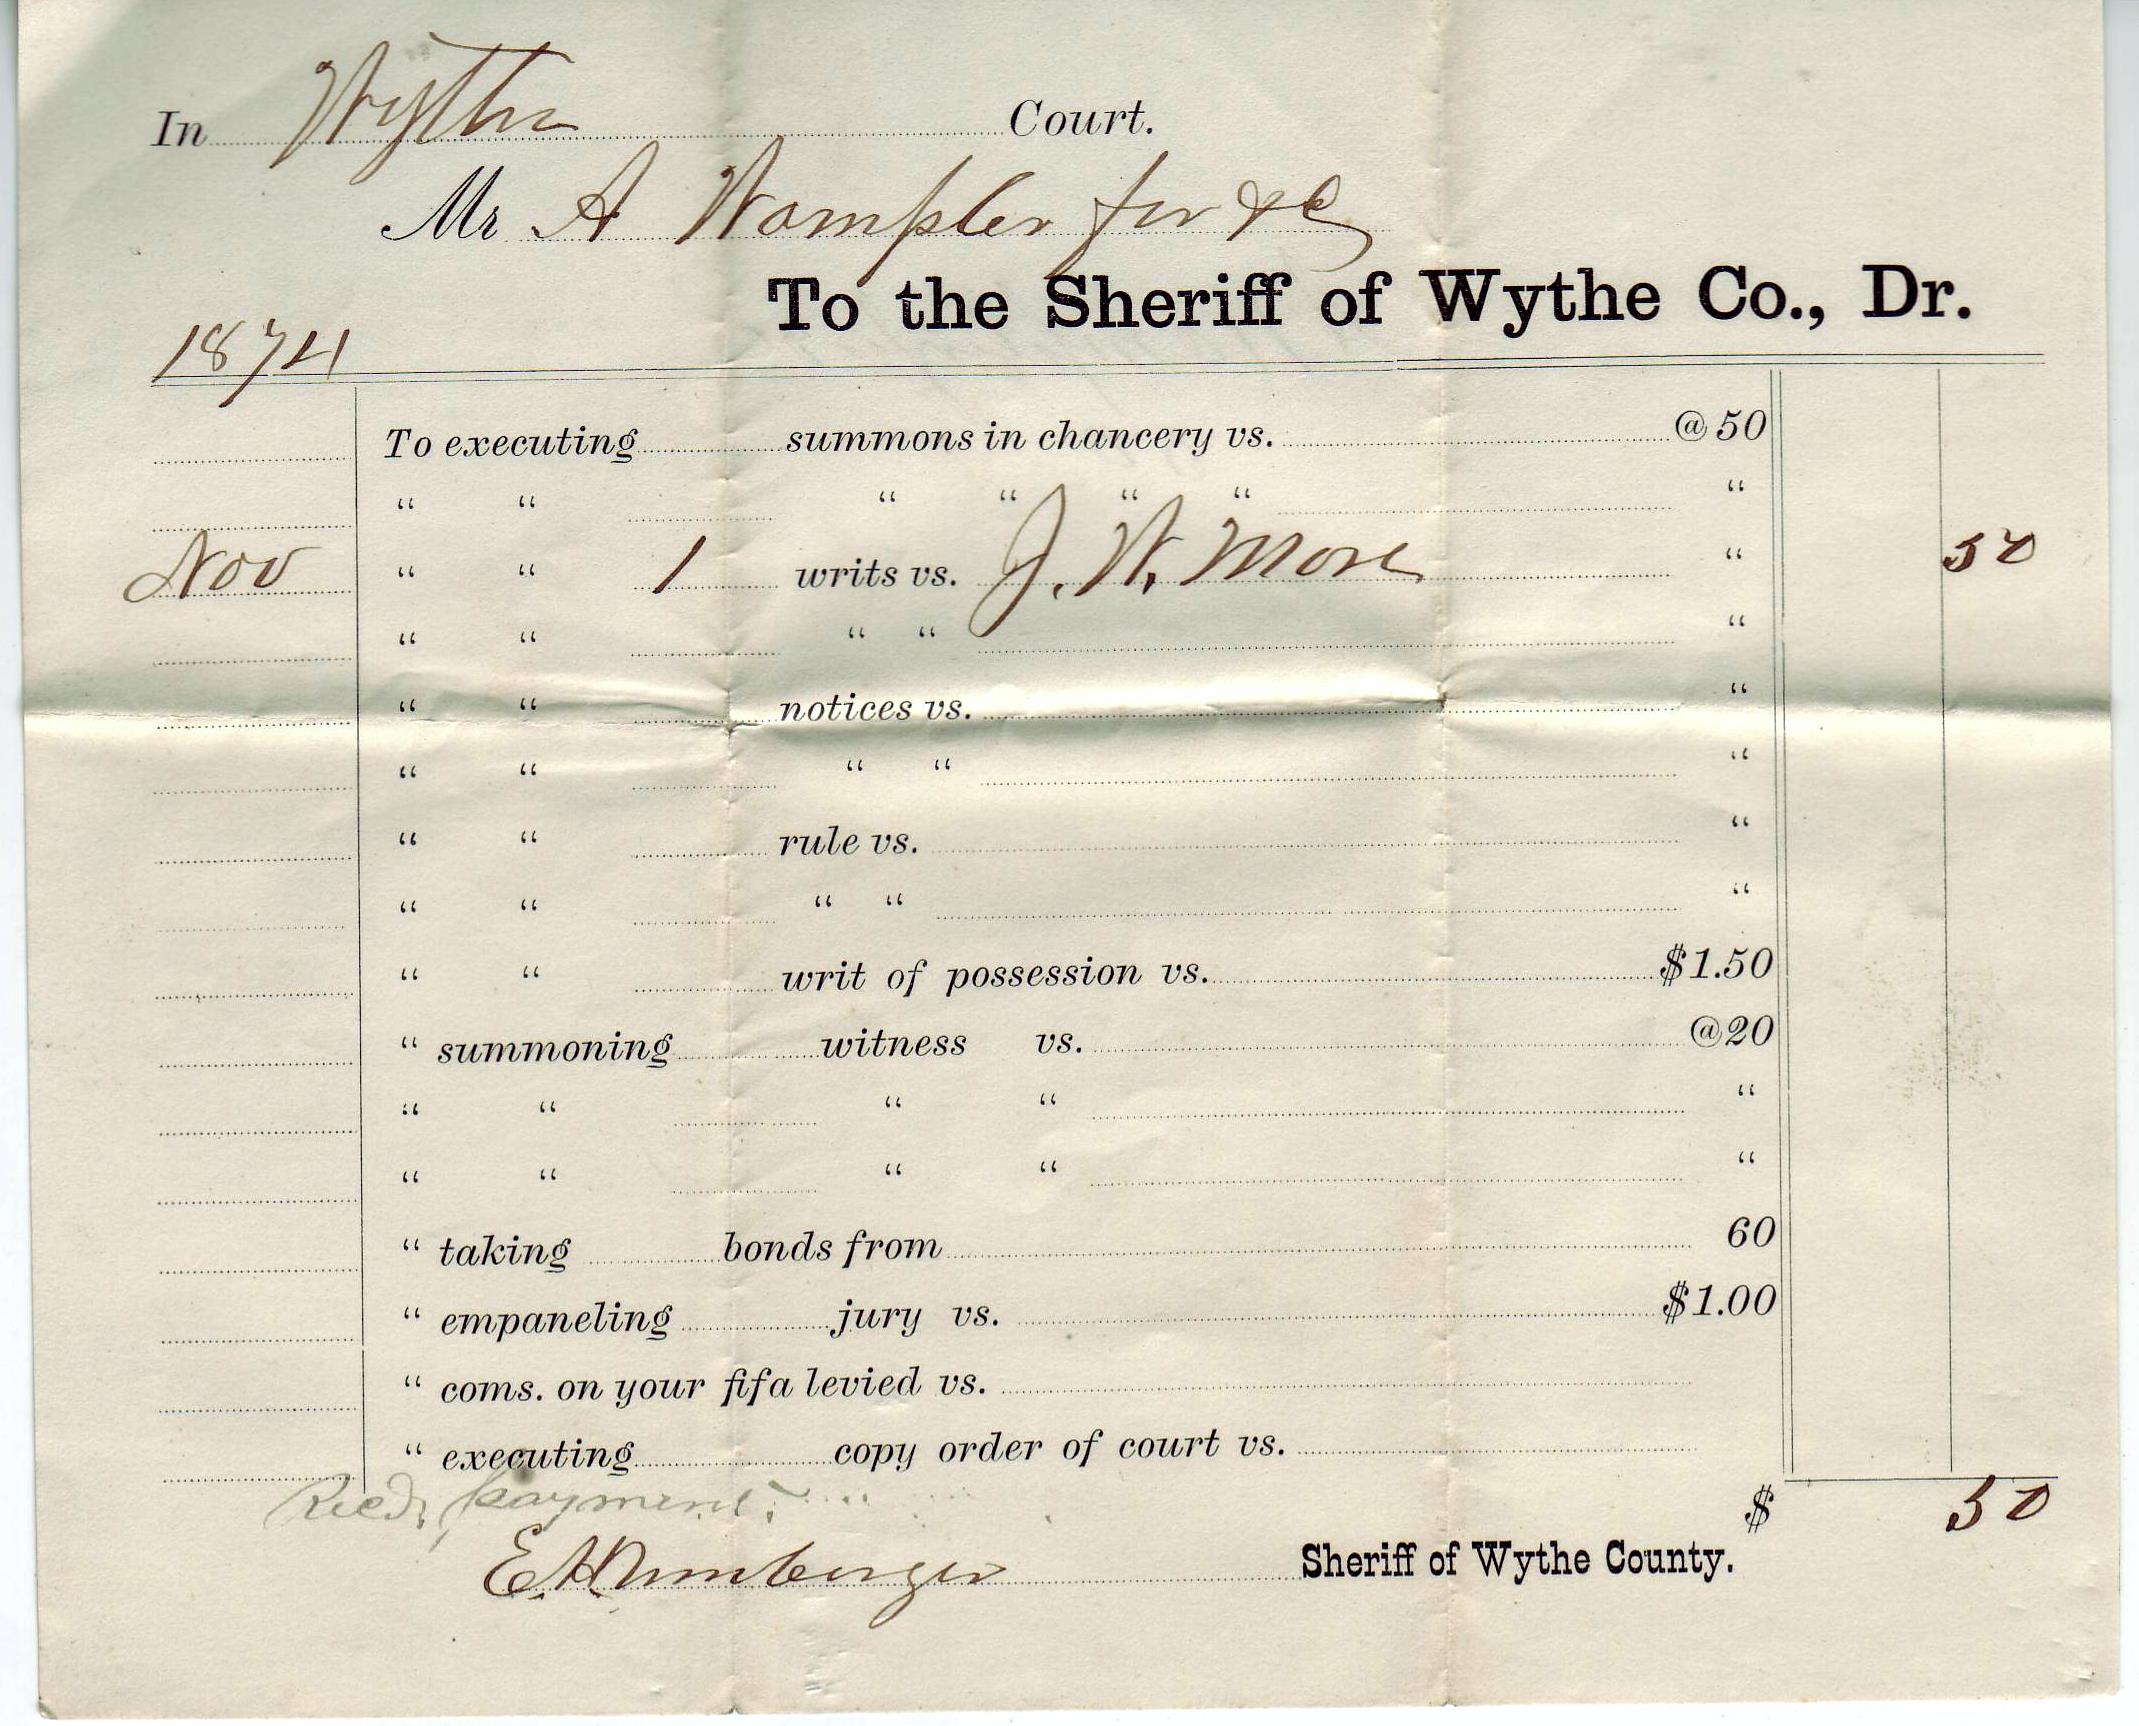 In Wythe Court.
Mr A Wampler for &c
To the Sheriff of Wythe Co., Dr.
1874
To executing summons in chancery vs. @ 50
“ “ “ “ “ “ “
Nov “ “ 1 writs vs. J. W. More “ 50
“ “ “ “ “
“ “ notices vs. “
“ “ “ “ “
“ “ rule vs. “
“ “ “ “ “
“ “ writ of possession vs. $1.50
“ summoning witness vs. @20
“ “ “ “ “
“ “ “ “ “
“ taking bonds from 60
“ empaneling jury vs. $1.00
“ coms. on your fifa levied vs.
“ executing copy order of court vs.
Recd. payment.
$ 50
E. H. Umbarger Sheriff of Wythe County.